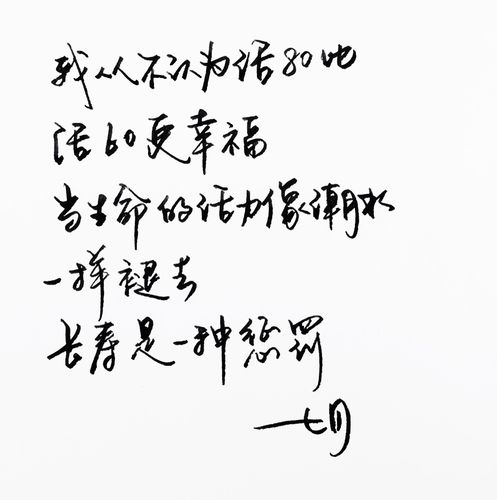 我从不认为活80比
活60更幸福
当生命的活力像潮水
一样褪去
长寿是一种惩罚
一七月